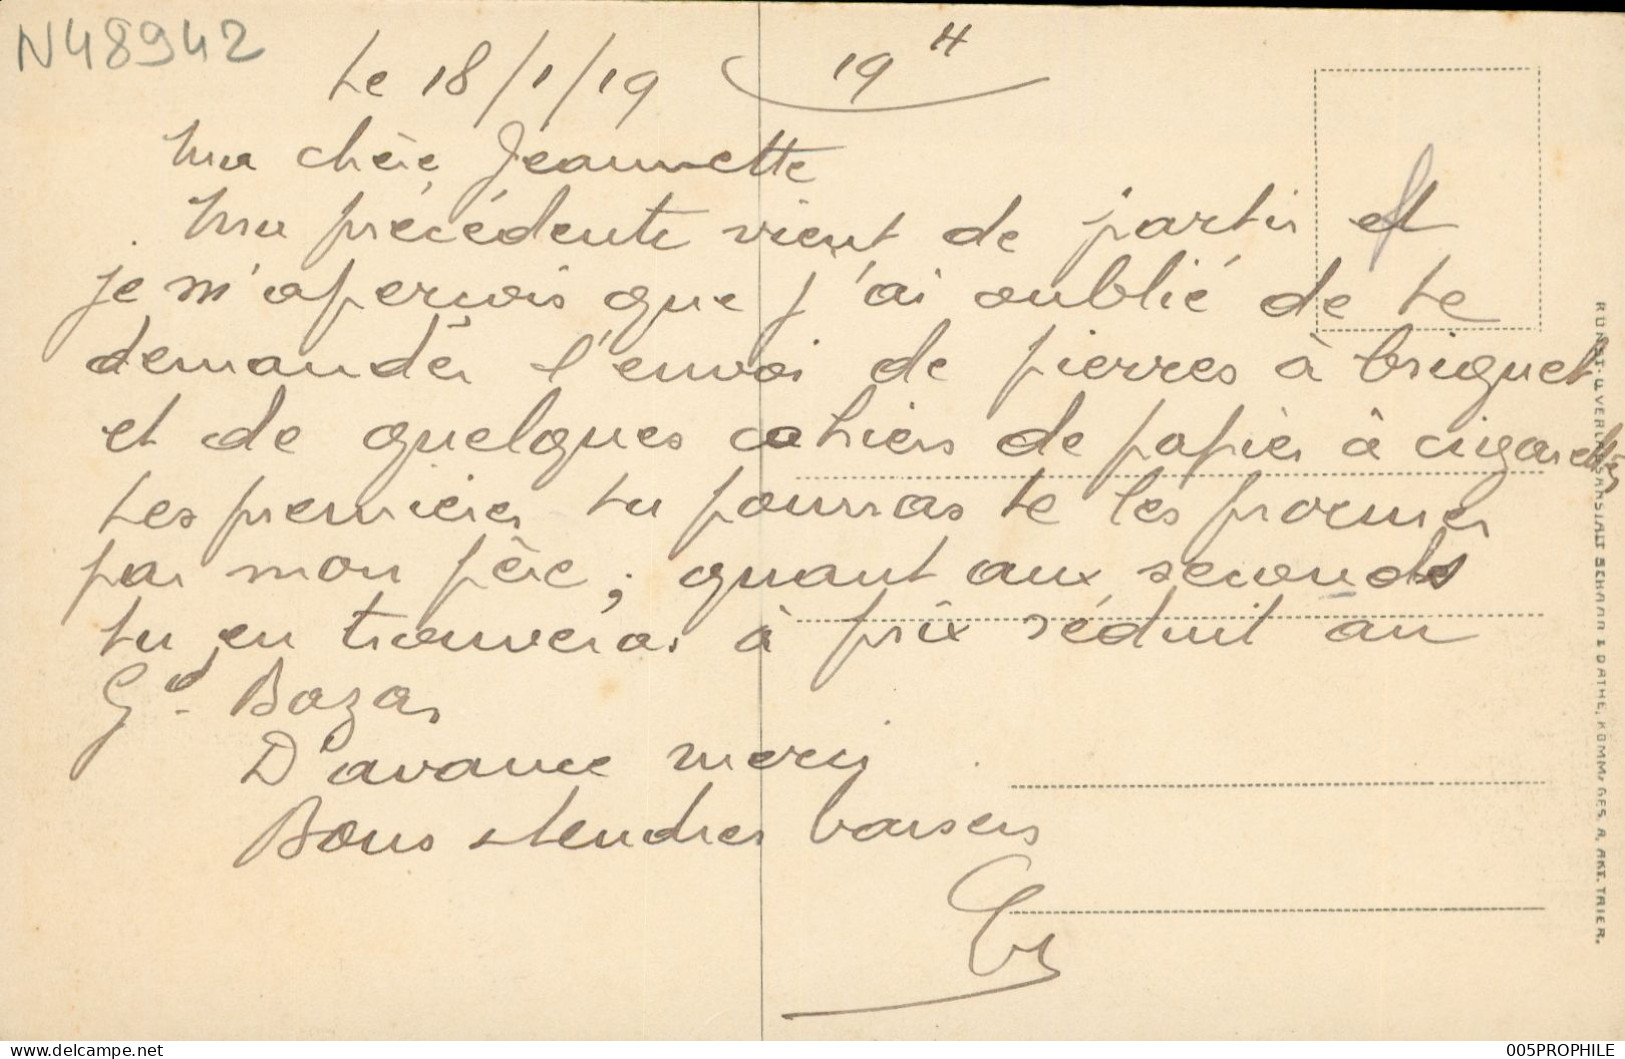 N48942
Le 18/1/19 19 H
Ma chère Jeannette
Ma précédente vient de partir et
je m'aperçois que j'ai oublié de te
demander l'envoi de pierres à briquet
et de quelques cahiers de papier à cigarettes
Les premières tu pourras te les procurer
par mon père ; quant aux seconds
tu en trouveras à prix réduit au
Gd. Bazar
D'avance merci
Bons et tendres baisers
KUNST- U. VERLAGSANSTALT SCHAAR & DATHE, KOMM. GES. A. AKT. TRIER.
www.delcampe.net
005PROPHILE